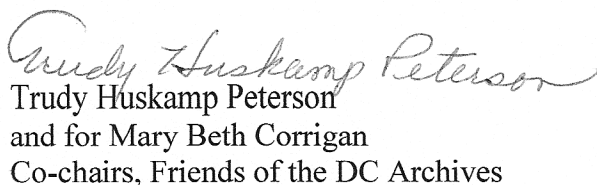 Trudy Huskamp Peterson
Trudy Huskamp Peterson
and for Mary Beth Corrigan
Co-chairs, Friends of the DC Archives